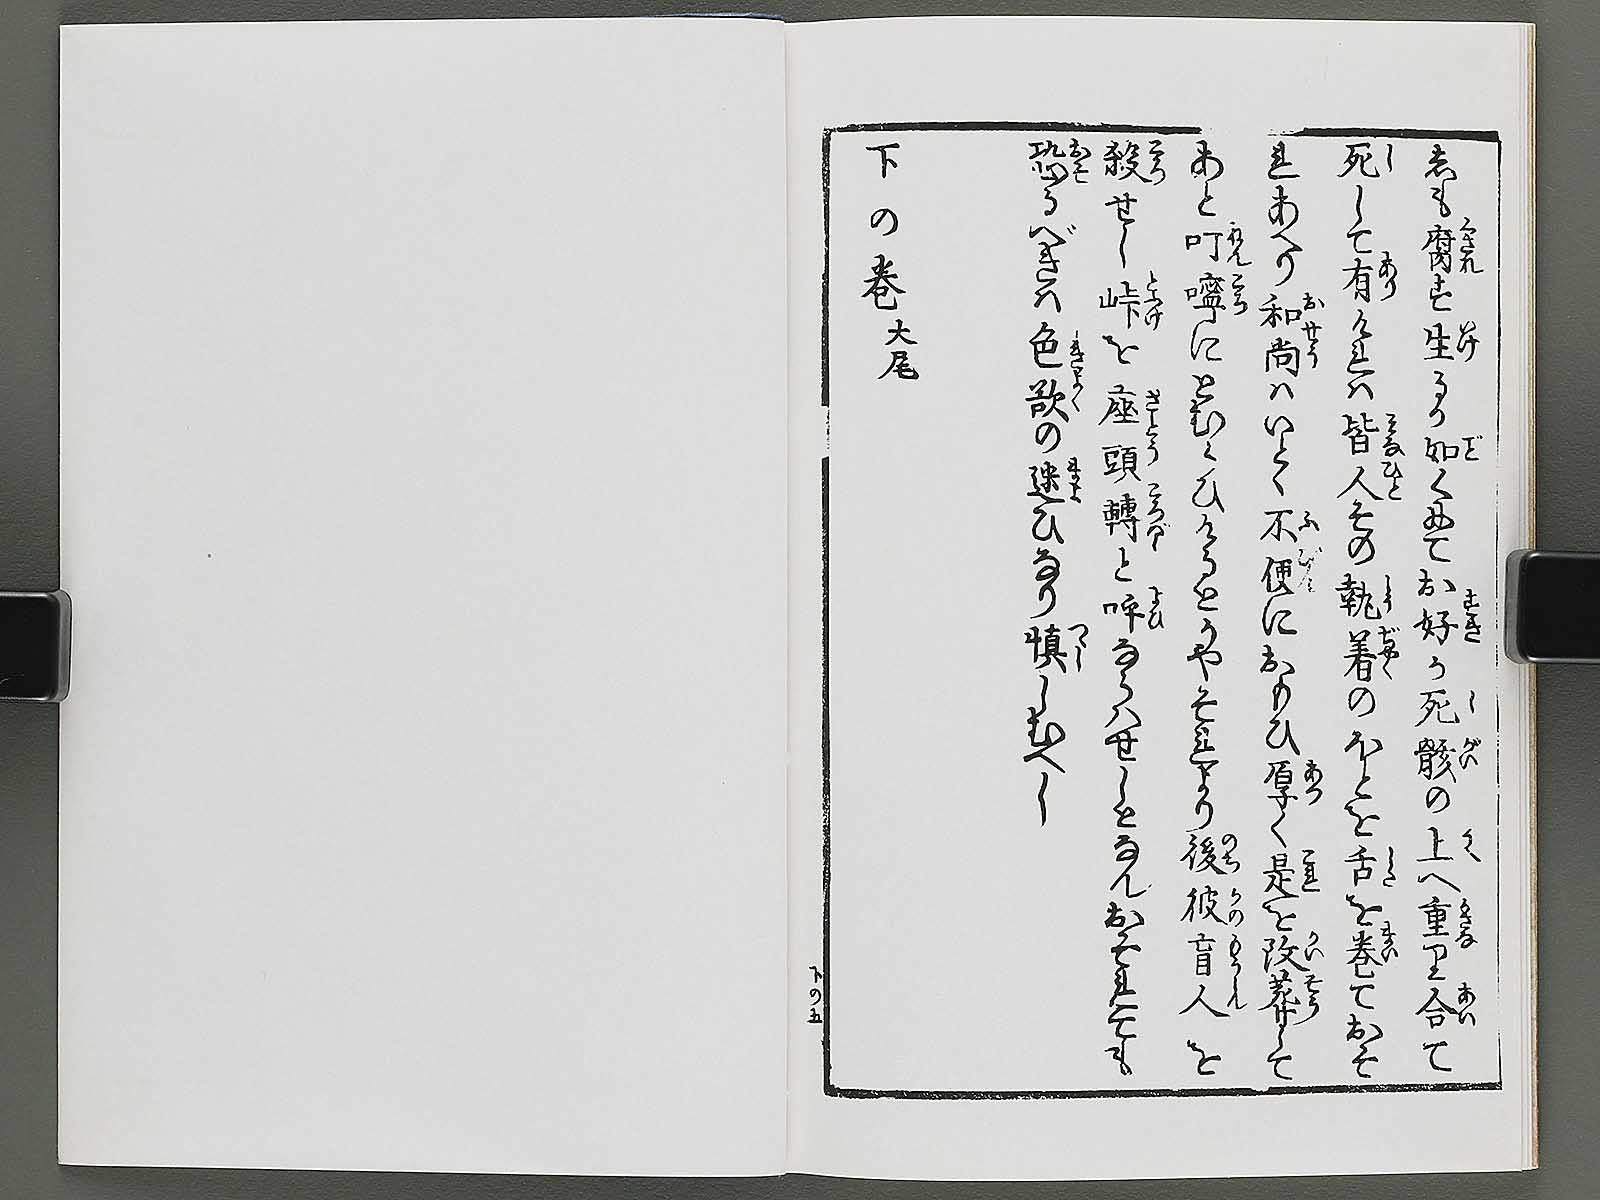 志も腐す生るか如くぬてお好か死骸の上へ重り合て
死して有けれは皆人その執着のほとを舌を巻ておそ
れあへり和尚ハいとゝ不便におもひ厚く是を改葬して
あと叮嚀にとむらひけるとかやそれより後彼盲人を
殺せし峠を座頭轉と呼ならハせしとなんおそれても
恐るべきハ色欲の迷ひなり慎しむへし
下の巻大尾
下の五